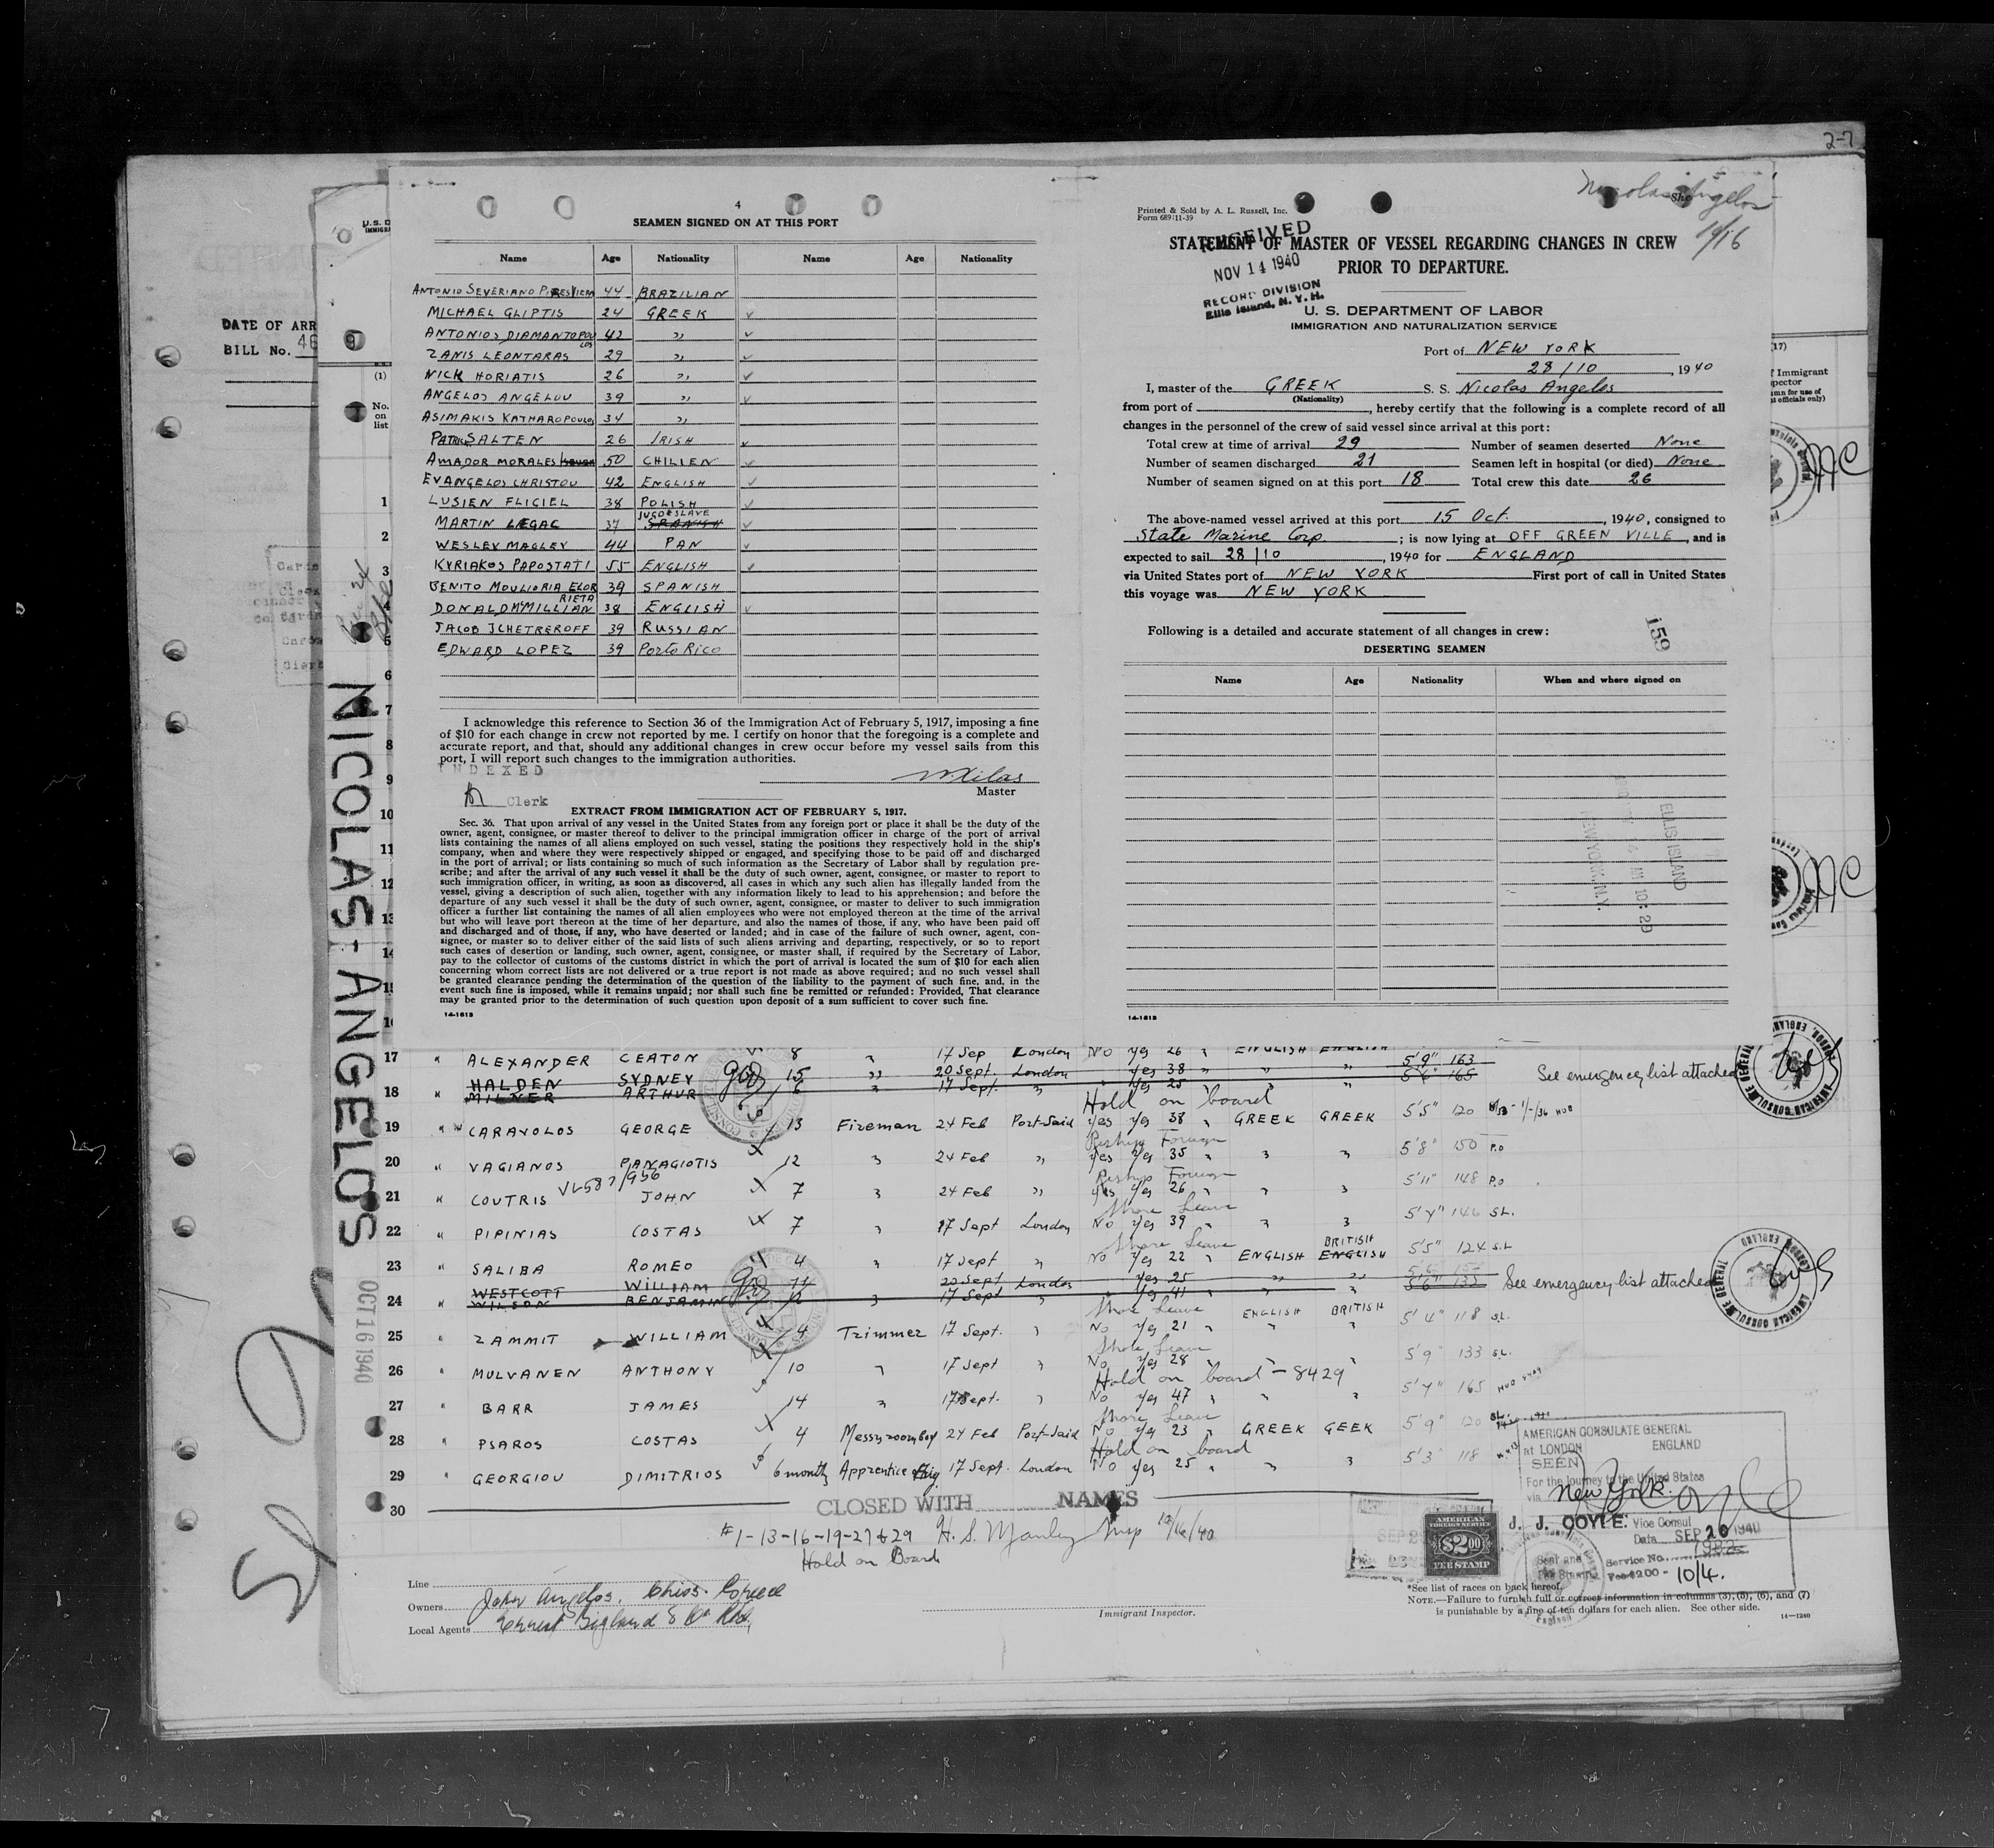 2-7
DATE OF ARR
BILL No. 46
U.S. D
IMMIGRA
9
(1)
No.
on
list
NICOLAS-ANGELOS
OCT 16 1940
4
SEAMEN SIGNED ON AT THIS PORT
Name Age Nationality Name Age Nationality
ANTONIO SEVERIANO 44 BRAZILIAN
MICHAEL GLIPTIS 24 GREEK
ANTONIOS DIAMANTOPOULOS 42 "
ZANIS LEONTARAS 29 "
NICK HORIATIS 26 "
ANGELOS ANGELOU 39 "
ASIMAKIS KATHAROPOULOS 34 "
PATRICK SALTEN 26 IRISH
AMADOR MORALES 50 CHILIEN
EVANGELOS CHRISTOU 42 ENGLISH
LUSIEN FLICIEL 38 POLISH
MARTIN LEGAC 37 JUGOESLAVE SPANISH
WESLEY MAGLEY 44 PAN
KYRIAKOS PAPOSTATI 55 ENGLISH
BENITO MOULIORIA ELORRIETA 39 SPANISH
DONALD McMILLIAN 38 ENGLISH
JACOB JCHETREROFF 39 RUSSIAN
EDWARD LOPEZ 39 Porto Rico
I acknowledge this reference to Section 36 of the Immigration Act of February 5, 1917, imposing a fine
of $10 for each change in crew not reported by me. I certify on honor that the foregoing is a complete and
accurate report, and that, should any additional changes in crew occur before my vessel sails from this
port, I will report such changes to the immigration authorities.
INDEXED
Master
Clerk
EXTRACT FROM IMMIGRATION ACT OF FEBRUARY 5, 1917.
Sec. 36. That upon arrival of any vessel in the United States from any foreign port or place it shall be the duty of the
owner, agent, consignee, or master thereof to deliver to the principal immigration officer in charge of the port of arrival
lists containing the names of all aliens employed on such vessel, stating the positions they respectively hold in the ship's
company, when and where they were respectively shipped or engaged, and specifying those to be paid off and discharged
in the port of arrival; or lists containing so much of such information as the Secretary of Labor shall by regulation pre-
scribe; and after the arrival of any such vessel it shall be the duty of such owner, agent, consignee, or master to report to
such immigration officer, in writing, as soon as discovered, all cases in which any such alien has illegally landed from the
vessel, giving a description of such alien, together with any information likely to lead to his apprehension; and before the
departure of any such vessel it shall be the duty of such owner, agent, consignee, or master to deliver to such immigration
officer a further list containing the names of all alien employees who were not employed thereon at the time of the arrival
but who will leave port thereon at the time of her departure, and also the names of those, if any, who have been paid off
and discharged and of those, if any, who have deserted or landed; and in case of the failure of such owner, agent, con-
signee, or master so to deliver either of the said lists of such aliens arriving and departing, respectively, or so to report
such cases of desertion or landing, such owner, agent, consignee, or master shall, if required by the Secretary of Labor,
pay to the collector of customs of the customs district in which the port of arrival is located the sum of $10 for each alien
concerning whom correct lists are not delivered or a true report is not made as above required; and no such vessel shall
be granted clearance pending the determination of the question of the liability to the payment of such fine, and, in the
event such fine is imposed, while it remains unpaid; nor shall such fine be remitted or refunded: Provided, That clearance
may be granted prior to the determination of such question upon deposit of a sum sufficient to cover such fine.
14-1613
Nicolas Angelos
10/16
Printed & Sold by A. L. Russell, Inc.
Form 689:11-39
RECEIVED
NOV 14 1940
RECORD DIVISION
Ellis Island, N. Y. H.
STATEMENT OF MASTER OF VESSEL REGARDING CHANGES IN CREW
PRIOR TO DEPARTURE.
U. S. DEPARTMENT OF LABOR
IMMIGRATION AND NATURALIZATION SERVICE
Port of NEW YORK
28/10, 1940
I, master of the GREEK S. S. Nicolas Angelos
(Nationality)
from port of , hereby certify that the following is a complete record of all
changes in the personnel of the crew of said vessel since arrival at this port:
Total crew at time of arrival 29 Number of seamen deserted None
Number of seamen discharged 21 Seamen left in hospital (or died) None
Number of seamen signed on at this port 18 Total crew this date 26
The above-named vessel arrived at this port 15 Oct. , 1940, consigned to
State Marine Corp. ; is now lying at OFF GREEN VILLE, and is
expected to sail 28/10 , 1940 for ENGLAND
via United States port of NEW YORK First port of call in United States
this voyage was NEW YORK
159
Following is a detailed and accurate statement of all changes in crew:
DESERTING SEAMEN
Name Age Nationality When and where signed on
ELLIS ISLAND
NEW YORK, N.Y.
14-1613
(17)
17 " ALEXANDER CEATON 8 " 17 Sep London No yes 26 " ENGLISH ENGLISH 5'9" 163
HALDEN SYDNEY 15 " 20 Sept. London yes 38 " " " See emergency list attached
18 MILNER ARTHUR 6 " 17 Sept. " yes 25 " " 5'6" 165
Hold on board
19 " CARAVOLOS GEORGE 13 Fireman 24 Feb Port-Said yes yes 38 " GREEK GREEK 5'5" 120
Reship Foreign
20 " VAGIANOS PANAGIOTIS 12 " 24 Feb " yes yes 35 " " " 5'8" 150 P.O
Reship Foreign
21 " COUTRIS JOHN 7 " 24 Feb " yes yes 26 " " " 5'11" 148 P.O
Shore Leave
22 " PIPINIAS COSTAS 7 " 17 Sept London No yes 39 " " " 5'4" 146 S.L.
Shore Leave
23 " SALIBA ROMEO 4 " 17 Sept " No yes 22 " ENGLISH BRITISH ENGLISH 5'5" 124 S.L
WESTCOTT WILLIAM 14 20 Sept London yes 25 " " See emergency list attached
24 " WILSON BENJAMIN 12 " 17 Sept " yes 41 " " 5'6" 135
Shore Leave
25 " ZAMMIT WILLIAM 4 Trimmer 17 Sept. " No yes 21 " ENGLISH BRITISH 5'4" 118 S.L.
Shore Leave
26 " MULVANEN ANTHONY 10 " 17 Sept " No yes 28 " " " 5'9" 133 S.L.
Hold on board - 8429
27 " BARR JAMES 14 " 17 Sept. " No yes 47 " " " 5'4" 165
Shore Leave
28 " PSAROS COSTAS 4 Messroomboy 24 Feb Port-Said No yes 23 " GREEK GEEK 5'9" 120 SL.
Hold on board
29 " GEORGIOU DIMITRIOS 6 month Apprentice 17 Sept. London No yes 25 " " " 5'3" 118
30
CLOSED WITH NAMES
#1-13-16-19-27&29 H. S. Manley Insp 10/16/40
Hold on Board
Line
Owners John Angelos, Chios. Greece
Local Agents Ernest Bigland & Co
Immigrant Inspector.
AMERICAN CONSULATE GENERAL
at LONDON ENGLAND
SEEN
For the journey to the United States
via New York.
J. J. COYLE. Vice Consul
Date SEP 20 1940
Service No.
Fee $2.00 - 10/4.
AMERICAN
FOREIGN SERVICE
$2.00
FEE STAMP
*See list of races on back hereof.
NOTE.—Failure to furnish full or correct information in columns (3), (5), (6), and (7)
is punishable by a fine of ten dollars for each alien. See other side.
14-1240